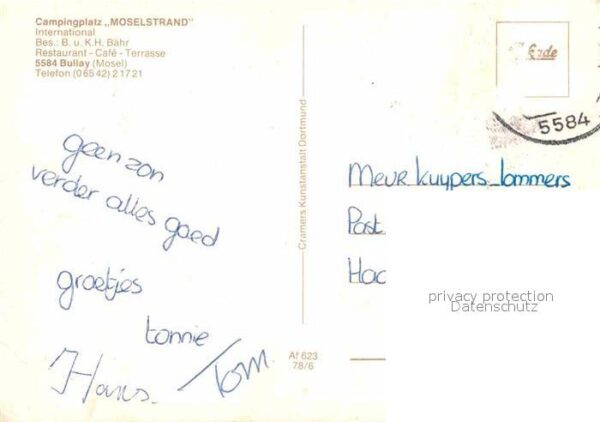 Campingplatz „MOSELSTRAND"
International
Bes.: B. u. K.H. Bähr
Restaurant - Café - Terrasse
5584 Bullay (Mosel)
Telefon (06542) 21721
geen zon
verder alles goed
groetjes
tonnie
Hans. / Tom.
Cramers Kunstanstalt Dortmund
Af 623
78/6
5584
Mevr Kuypers_Lommers
Post
Hac
privacy protection
Datenschutz